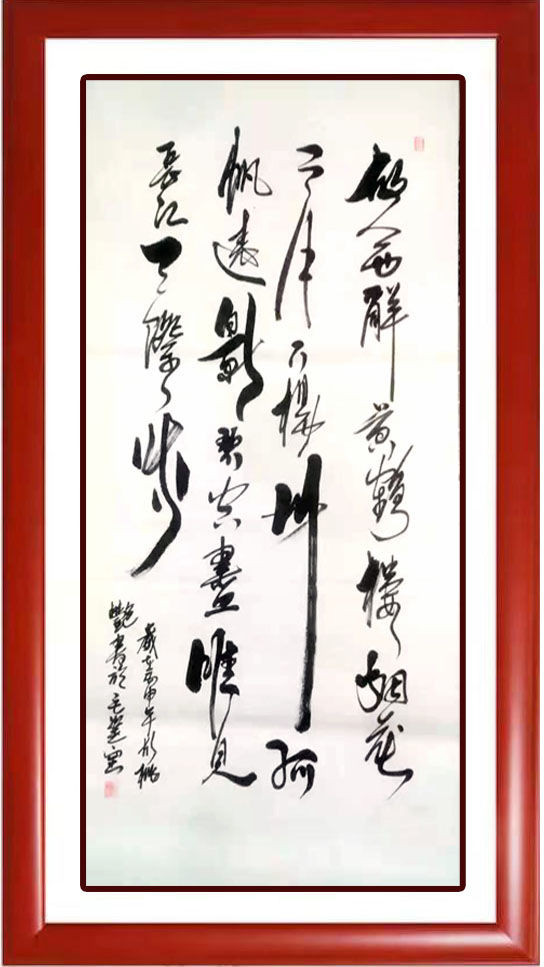 故人西辭黃鶴樓烟花
三月下揚州孤
帆遠影碧空盡唯見
長江天際流
歲在丙申年
艷書於